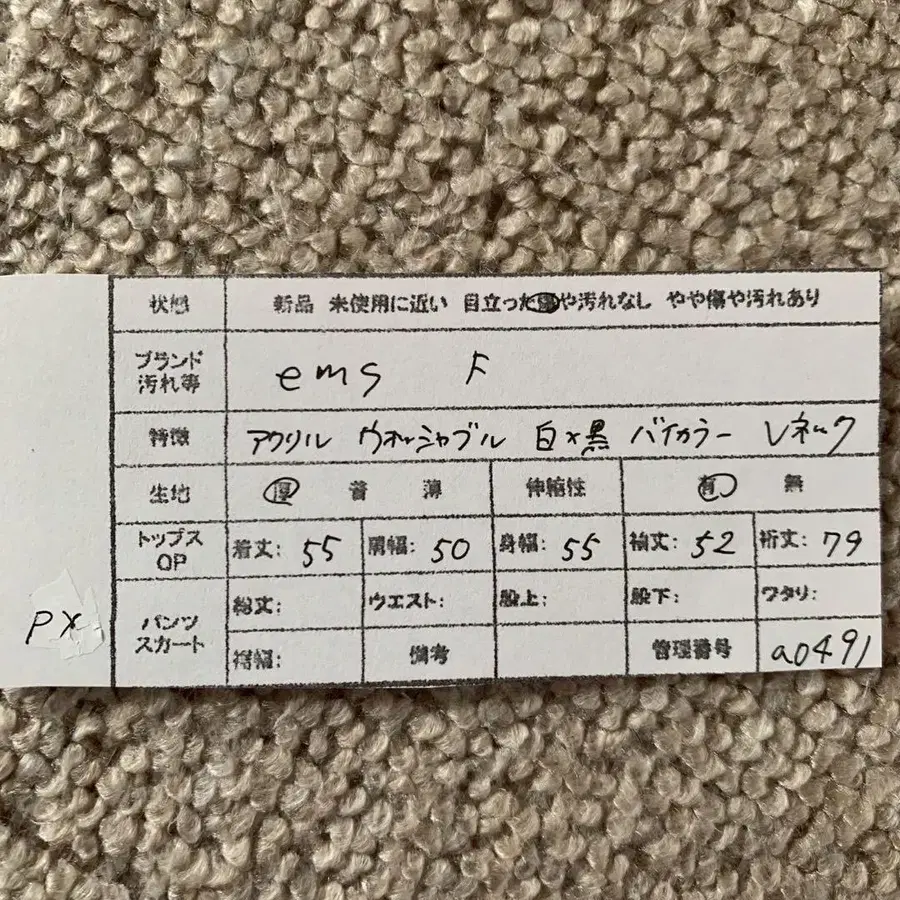 状態 新品 未使用に近い 目立った傷や汚れなし やや傷や汚れあり
ブランド
汚れ等 ems F
特徴 アクリル ウォッシャブル 白×黒 バイカラー Vネック
生地 厚 普 薄 伸縮性 有 無
トップス
OP 着丈: 55 肩幅: 50 身幅: 55 袖丈: 52 裄丈: 79
パンツ
スカート 総丈: ウエスト: 股上: 股下: ワタリ:
裾幅: 備考 管理番号 a0491
PX